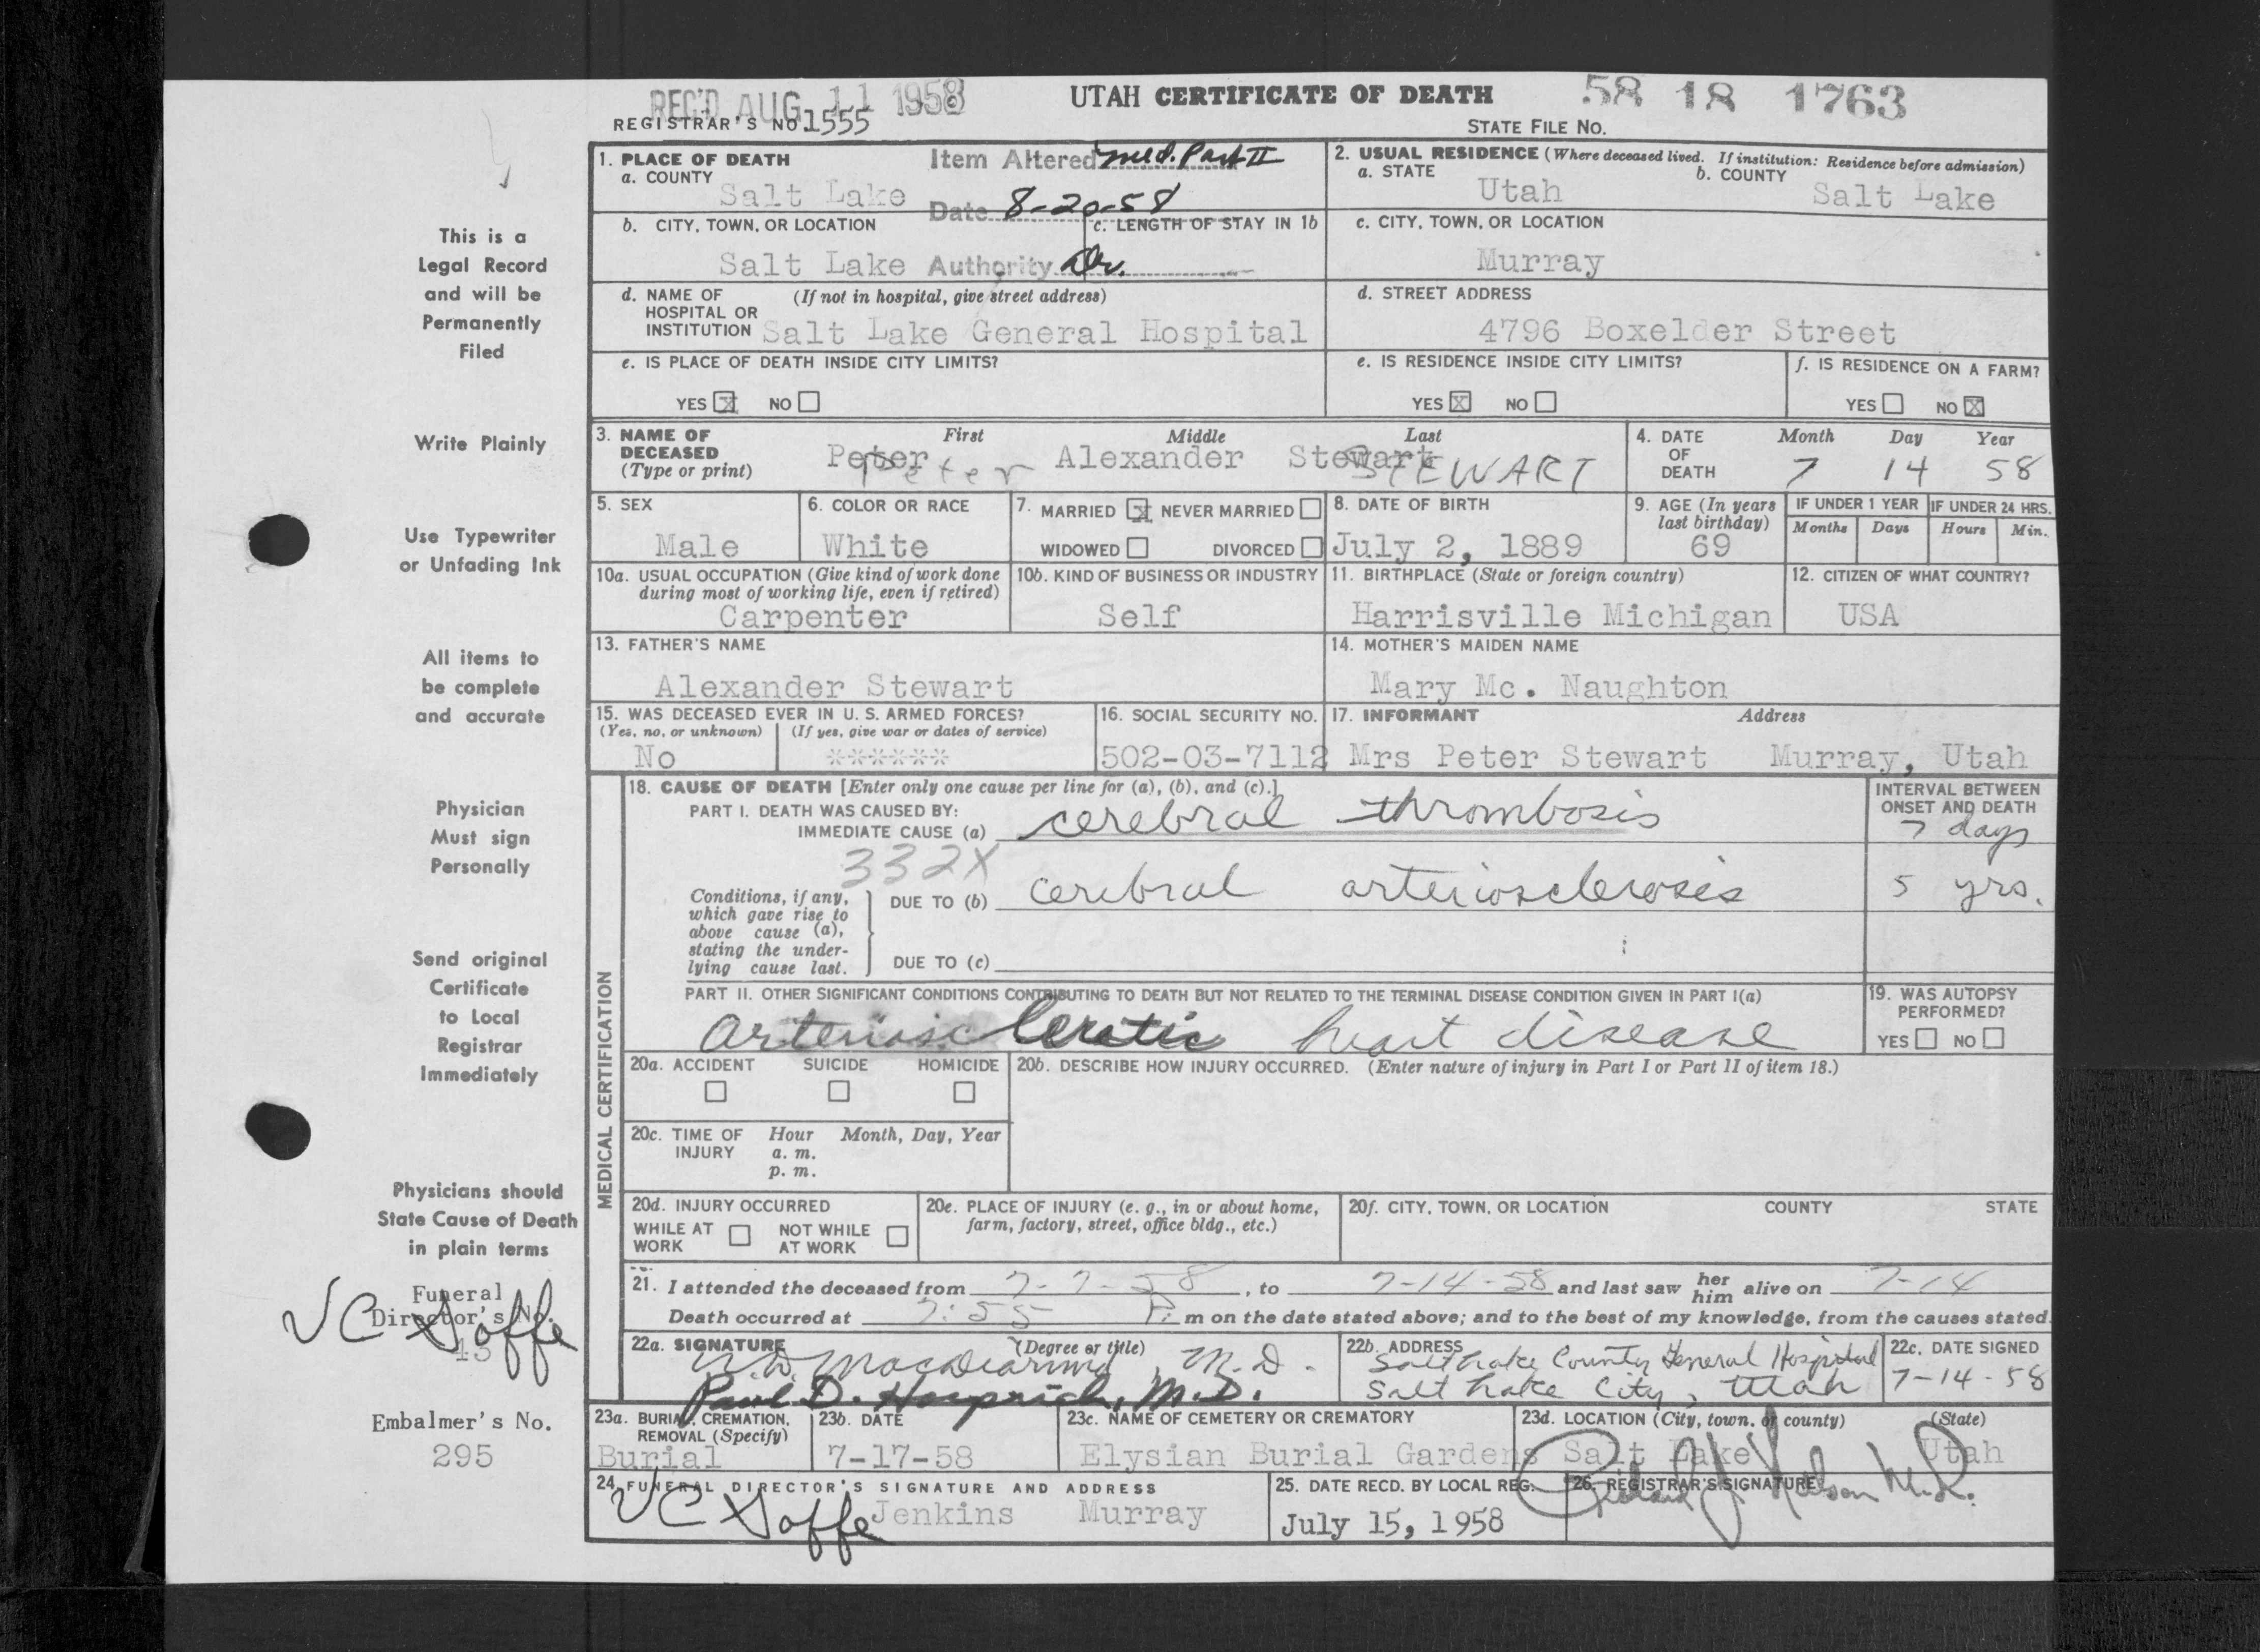 REC'D AUG 11 1958
UTAH CERTIFICATE OF DEATH
58 18 1763
REGISTRAR'S NO. 1555
STATE FILE NO.
1. PLACE OF DEATH
a. COUNTY
Salt Lake
Item Altered med. Part II
Date 8-20-58
Authority Dr.
2. USUAL RESIDENCE (Where deceased lived. If institution: Residence before admission)
a. STATE
Utah
b. COUNTY
Salt Lake
b. CITY, TOWN, OR LOCATION
Salt Lake
c. LENGTH OF STAY IN 1b
c. CITY, TOWN, OR LOCATION
Murray
d. NAME OF HOSPITAL OR INSTITUTION
(If not in hospital, give street address)
Salt Lake General Hospital
d. STREET ADDRESS
4796 Boxelder Street
e. IS PLACE OF DEATH INSIDE CITY LIMITS?
YES X NO
e. IS RESIDENCE INSIDE CITY LIMITS?
YES X NO
f. IS RESIDENCE ON A FARM?
YES NO X
3. NAME OF DECEASED
(Type or print)
First Middle Last
Peter Alexander Stewart
Peter STEWART
4. DATE OF DEATH
Month Day Year
7 14 58
5. SEX
Male
6. COLOR OR RACE
White
7. MARRIED X NEVER MARRIED
WIDOWED DIVORCED
8. DATE OF BIRTH
July 2, 1889
9. AGE (In years last birthday)
69
IF UNDER 1 YEAR
Months Days
IF UNDER 24 HRS.
Hours Min.
10a. USUAL OCCUPATION (Give kind of work done during most of working life, even if retired)
Carpenter
10b. KIND OF BUSINESS OR INDUSTRY
Self
11. BIRTHPLACE (State or foreign country)
Harrisville Michigan
12. CITIZEN OF WHAT COUNTRY?
USA
13. FATHER'S NAME
Alexander Stewart
14. MOTHER'S MAIDEN NAME
Mary Mc. Naughton
15. WAS DECEASED EVER IN U. S. ARMED FORCES?
(Yes, no, or unknown) (If yes, give war or dates of service)
No *******
16. SOCIAL SECURITY NO.
502-03-7112
17. INFORMANT Address
Mrs Peter Stewart Murray, Utah
MEDICAL CERTIFICATION
18. CAUSE OF DEATH [Enter only one cause per line for (a), (b), and (c).]
PART I. DEATH WAS CAUSED BY:
IMMEDIATE CAUSE (a) cerebral thrombosis
INTERVAL BETWEEN ONSET AND DEATH
7 days
332X
Conditions, if any, which gave rise to above cause (a), stating the underlying cause last.
DUE TO (b) cerebral arteriosclerosis
5 yrs.
DUE TO (c)
PART II. OTHER SIGNIFICANT CONDITIONS CONTRIBUTING TO DEATH BUT NOT RELATED TO THE TERMINAL DISEASE CONDITION GIVEN IN PART I(a)
arteriosclerotic heart disease
19. WAS AUTOPSY PERFORMED?
YES NO
20a. ACCIDENT SUICIDE HOMICIDE
20b. DESCRIBE HOW INJURY OCCURRED. (Enter nature of injury in Part I or Part II of item 18.)
20c. TIME OF INJURY Hour Month, Day, Year
a. m.
p. m.
20d. INJURY OCCURRED
WHILE AT WORK NOT WHILE AT WORK
20e. PLACE OF INJURY (e. g., in or about home, farm, factory, street, office bldg., etc.)
20f. CITY, TOWN, OR LOCATION COUNTY STATE
21. I attended the deceased from 7-7-58, to 7-14-58 and last saw her him alive on 7-14
Death occurred at 7:55 P. m on the date stated above; and to the best of my knowledge, from the causes stated.
22a. SIGNATURE (Degree or title)
M.D.
Paul D. M.D.
22b. ADDRESS
Salt Lake County General Hospital
Salt Lake City, Utah
22c. DATE SIGNED
7-14-58
23a. BURIAL, CREMATION, REMOVAL (Specify)
Burial
23b. DATE
7-17-58
23c. NAME OF CEMETERY OR CREMATORY
Elysian Burial Gardens
23d. LOCATION (City, town, or county) (State)
Salt Lake Utah
24. FUNERAL DIRECTOR'S SIGNATURE AND ADDRESS
Jenkins Murray
25. DATE RECD. BY LOCAL REG.
July 15, 1958
26. REGISTRAR'S SIGNATURE
This is a
Legal Record
and will be
Permanently
Filed
Write Plainly
Use Typewriter
or Unfading Ink
All items to
be complete
and accurate
Physician
Must sign
Personally
Send original
Certificate
to Local
Registrar
Immediately
Physicians should
State Cause of Death
in plain terms
Funeral
Director's No.
43
Embalmer's No.
295